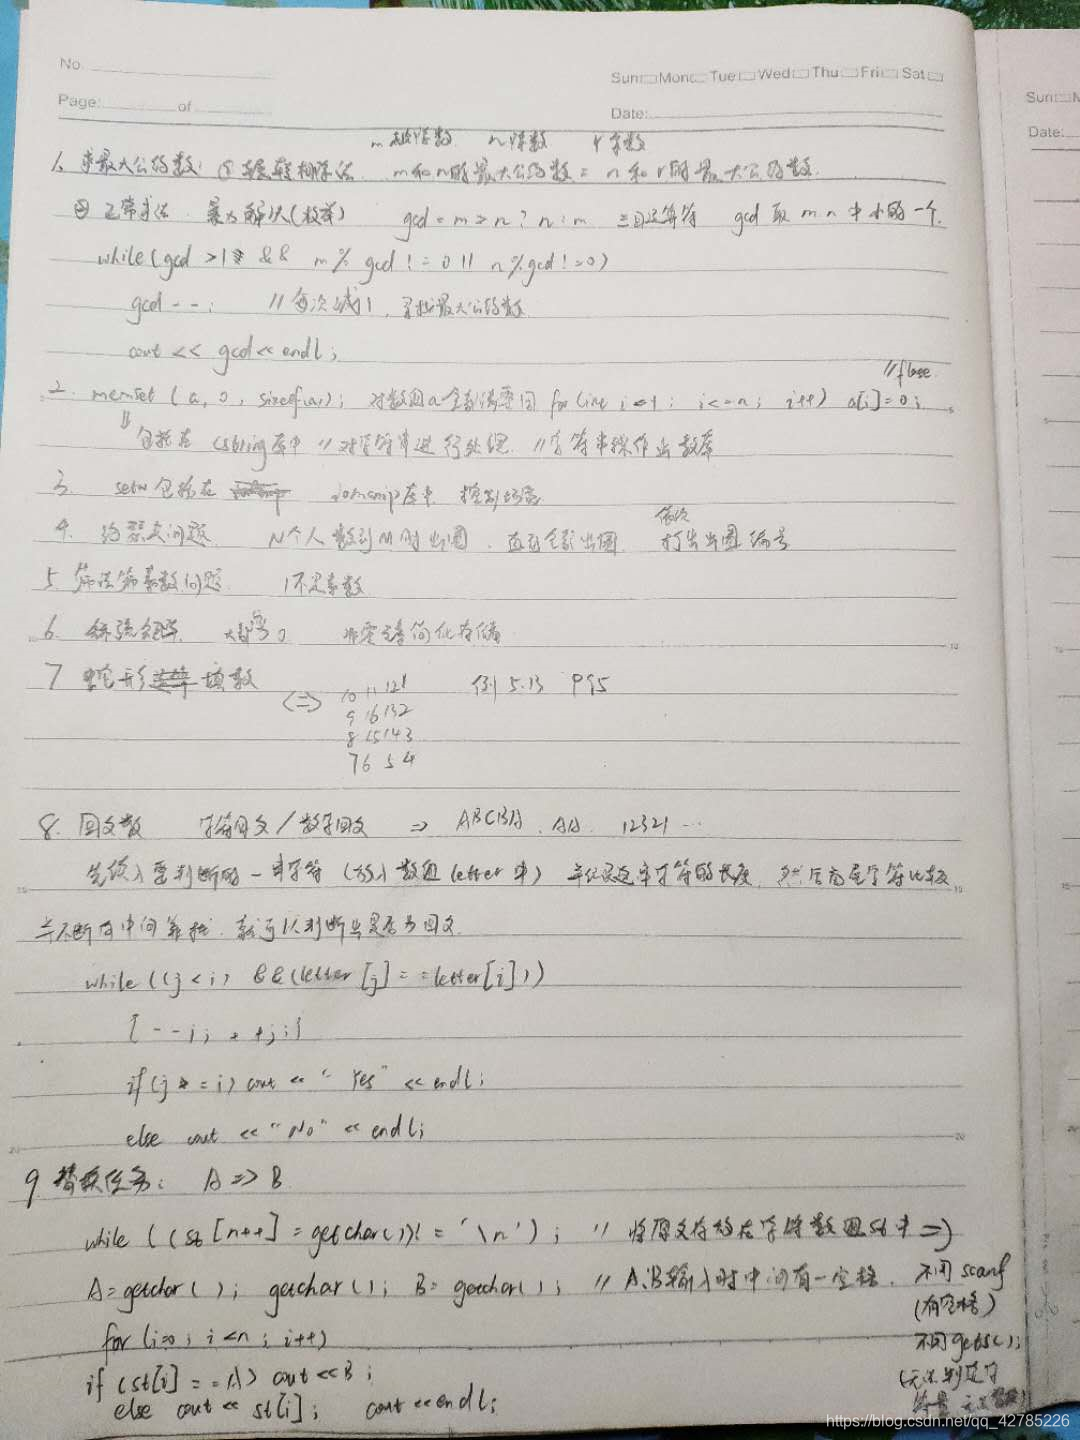 No.
Sun Mon Tue Wed Thu Fri Sat
Page: of
Date:
Sun
Date:
m 被除数 n 除数 r 余数
1. 求最大公约数: ① 辗转相除法 m和n的最大公约数 = n和r的最大公约数.
② 正常求法 暴力解决(枚举) gcd = m > n ? n : m 三目运算符 gcd 取 m n 中小的一个.
while(gcd >1 && m % gcd != 0 || n % gcd != 0)
gcd --; // 每次减1, 寻找最大公约数
cout << gcd << endl;
// flase.
2. memset (a, 0, sizeof(a)); 对数组a全部清零同 for(int i=1; i<=n; i++) a[i]=0;
包括在 cstring 库中 // 对字符串进行处理 // 字符串操作函数库
3. setw 包括在 iomanip库中 控制场宽
4. 约瑟夫问题 N个人数到M时出圈, 直至全部出圈 依次打出出圈编号
5 筛法筛素数问题 1不是素数
6. 稀疏矩阵 大部分 0 非零元素简化存储
7 蛇形填数 <=> 例 5.13 P95
10 11 12 1
9 16 13 2
8 15 14 3
7 6 5 4
8. 回文数 字符回文 / 数字回文 => ABCBA , AA. 12321 ...
先读入要判断的一串字符 (放入数组 letter 中) 并记录这串字符的长度, 然后首尾字符比较
并不断向中间靠拢, 就可以判断出是否为回文.
while ((j < i) && (letter [j] == letter[i]))
{ --i; ++j; }
if (j >= i) cout << " Yes" << endl;
else cout << "No" << endl;
9 替换任务: A => B
while ((st [n++] = getchar())! = '\n') ; // 将原文存放在字符数组st中 =>
A = getchar ( ); getchar ( ); B = getchar( ); // A、B输入时中间有一空格. 不用 scanf
(有空格)
for (i=0; i<n; i++) 不用 gets();
if (st[i] == A) cout << B;
else cout << st[i]; cout << endl;
https://blog.csdn.net/qq_42785226